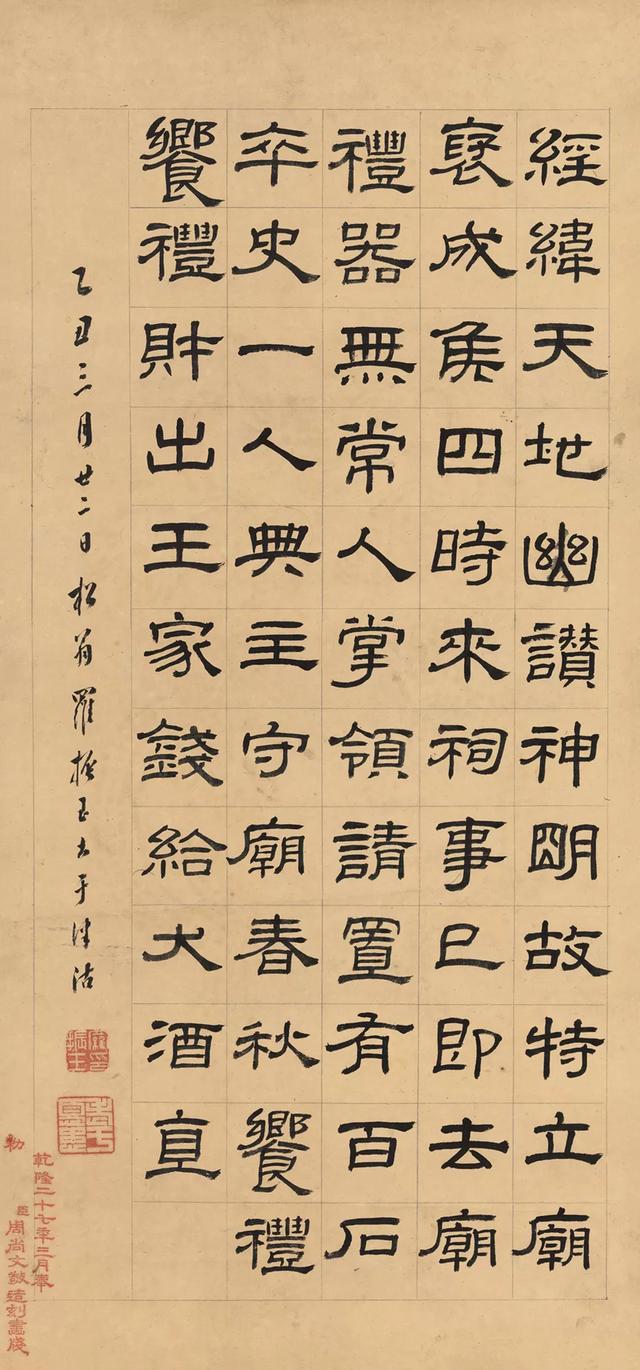 經緯天地幽讃神明故特立廟
襃成侯四時來祠事已即去廟
禮器無常人掌領請置有百石
卒史一人典主守廟春秋饗禮
饗禮財出王家錢給犬酒直
乙丑三月廿二日松翁羅振玉書于津沽
羅振玉
勅
乾隆二十七年三月奉
臣周尚文
造刻畫牋